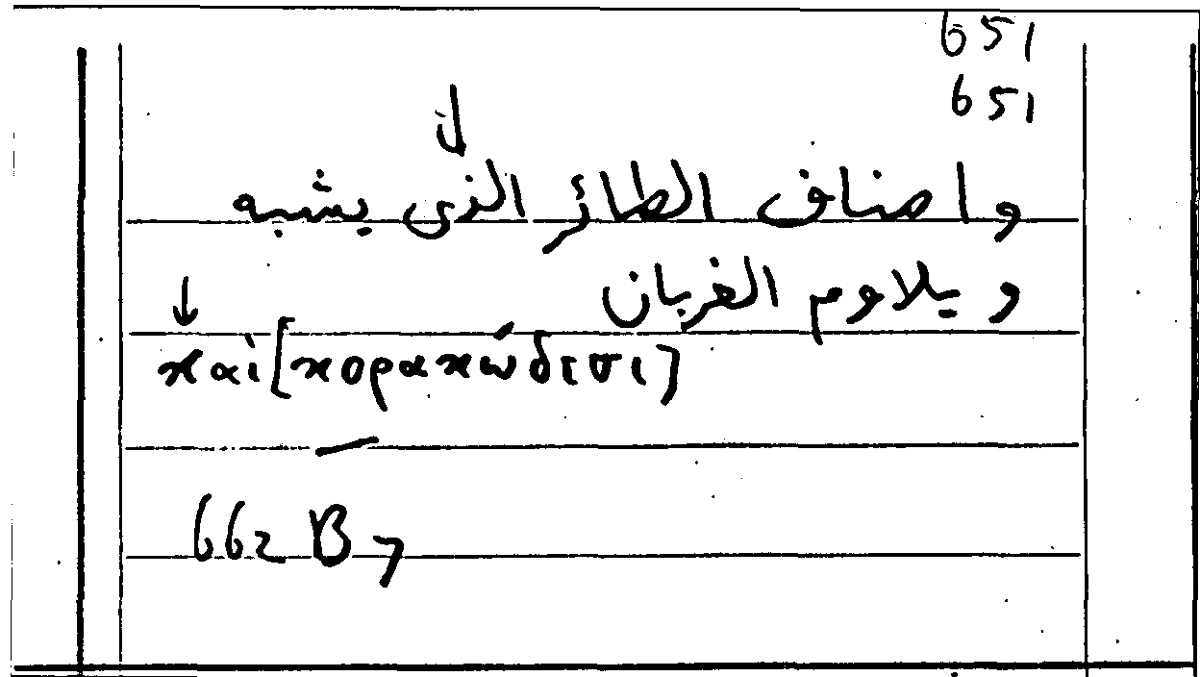 651
651
واصناف الطائر الذى يشبه
ويلاوم الغربان
καὶ [κορακώδεσι]
662 B 7